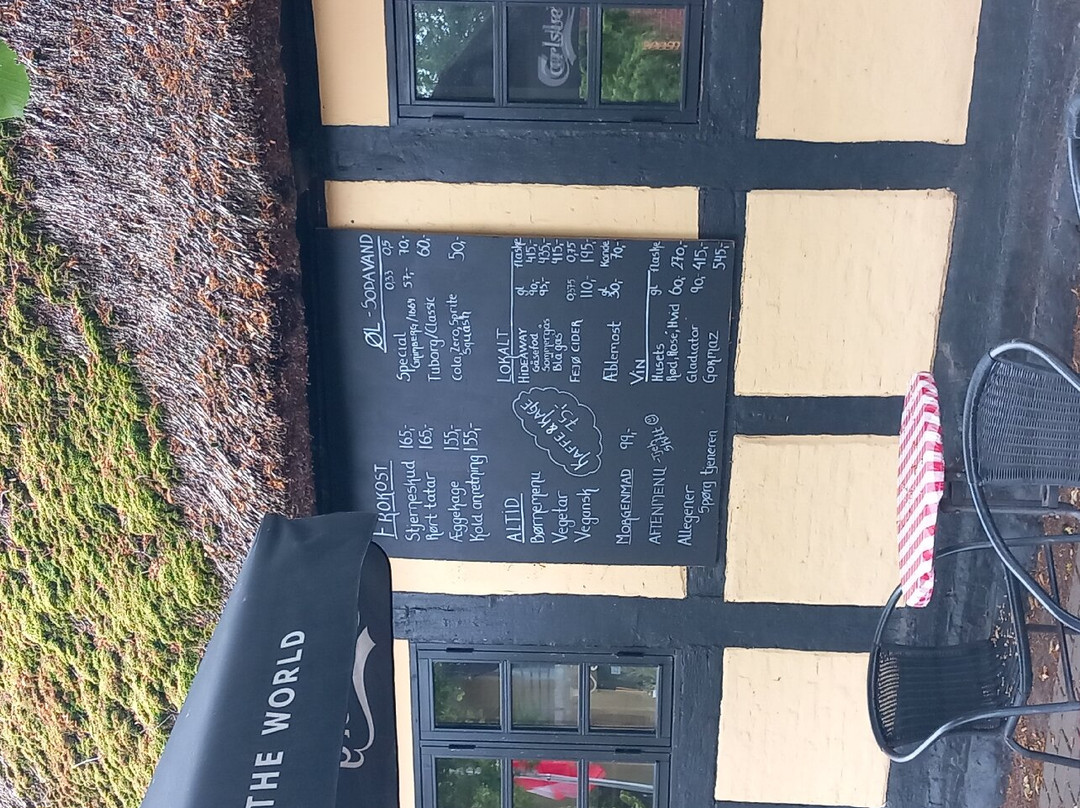 FROKOST
Stjerneskud 165,-
Rørt tatar 165,-
Æggekage 155,-
Kold anretning 155,-
ALTID
Børnemenu
Vegetar
Vegansk
KAFFE & KAGE
75,-
MORGENMAD 99,-
AFTENMENU
Allergener
Spørg tjeneren
ØL - SODAVAND
0,33 0,5
Special 57,- 70,-
Grimberg/1664
Tuborg/Classic 60,-
Cola, Zero, Sprite 50,-
Squash
LOKALT gl flaske
HIDEAWAY
Gåsefod 90,- 415,-
Sommergås 95,- 435,-
Blå gås 415,-
0,375 0,75
FEJØ CIDER 110,- 195,-
gl Kande
Æblemost 30,- 70,-
VIN gl flaske
Husets
Rød, Rose, Hvid 60,- 270,-
Gladiator 90,- 415,-
Gormaz 545,-
Carlsberg
THE WORLD